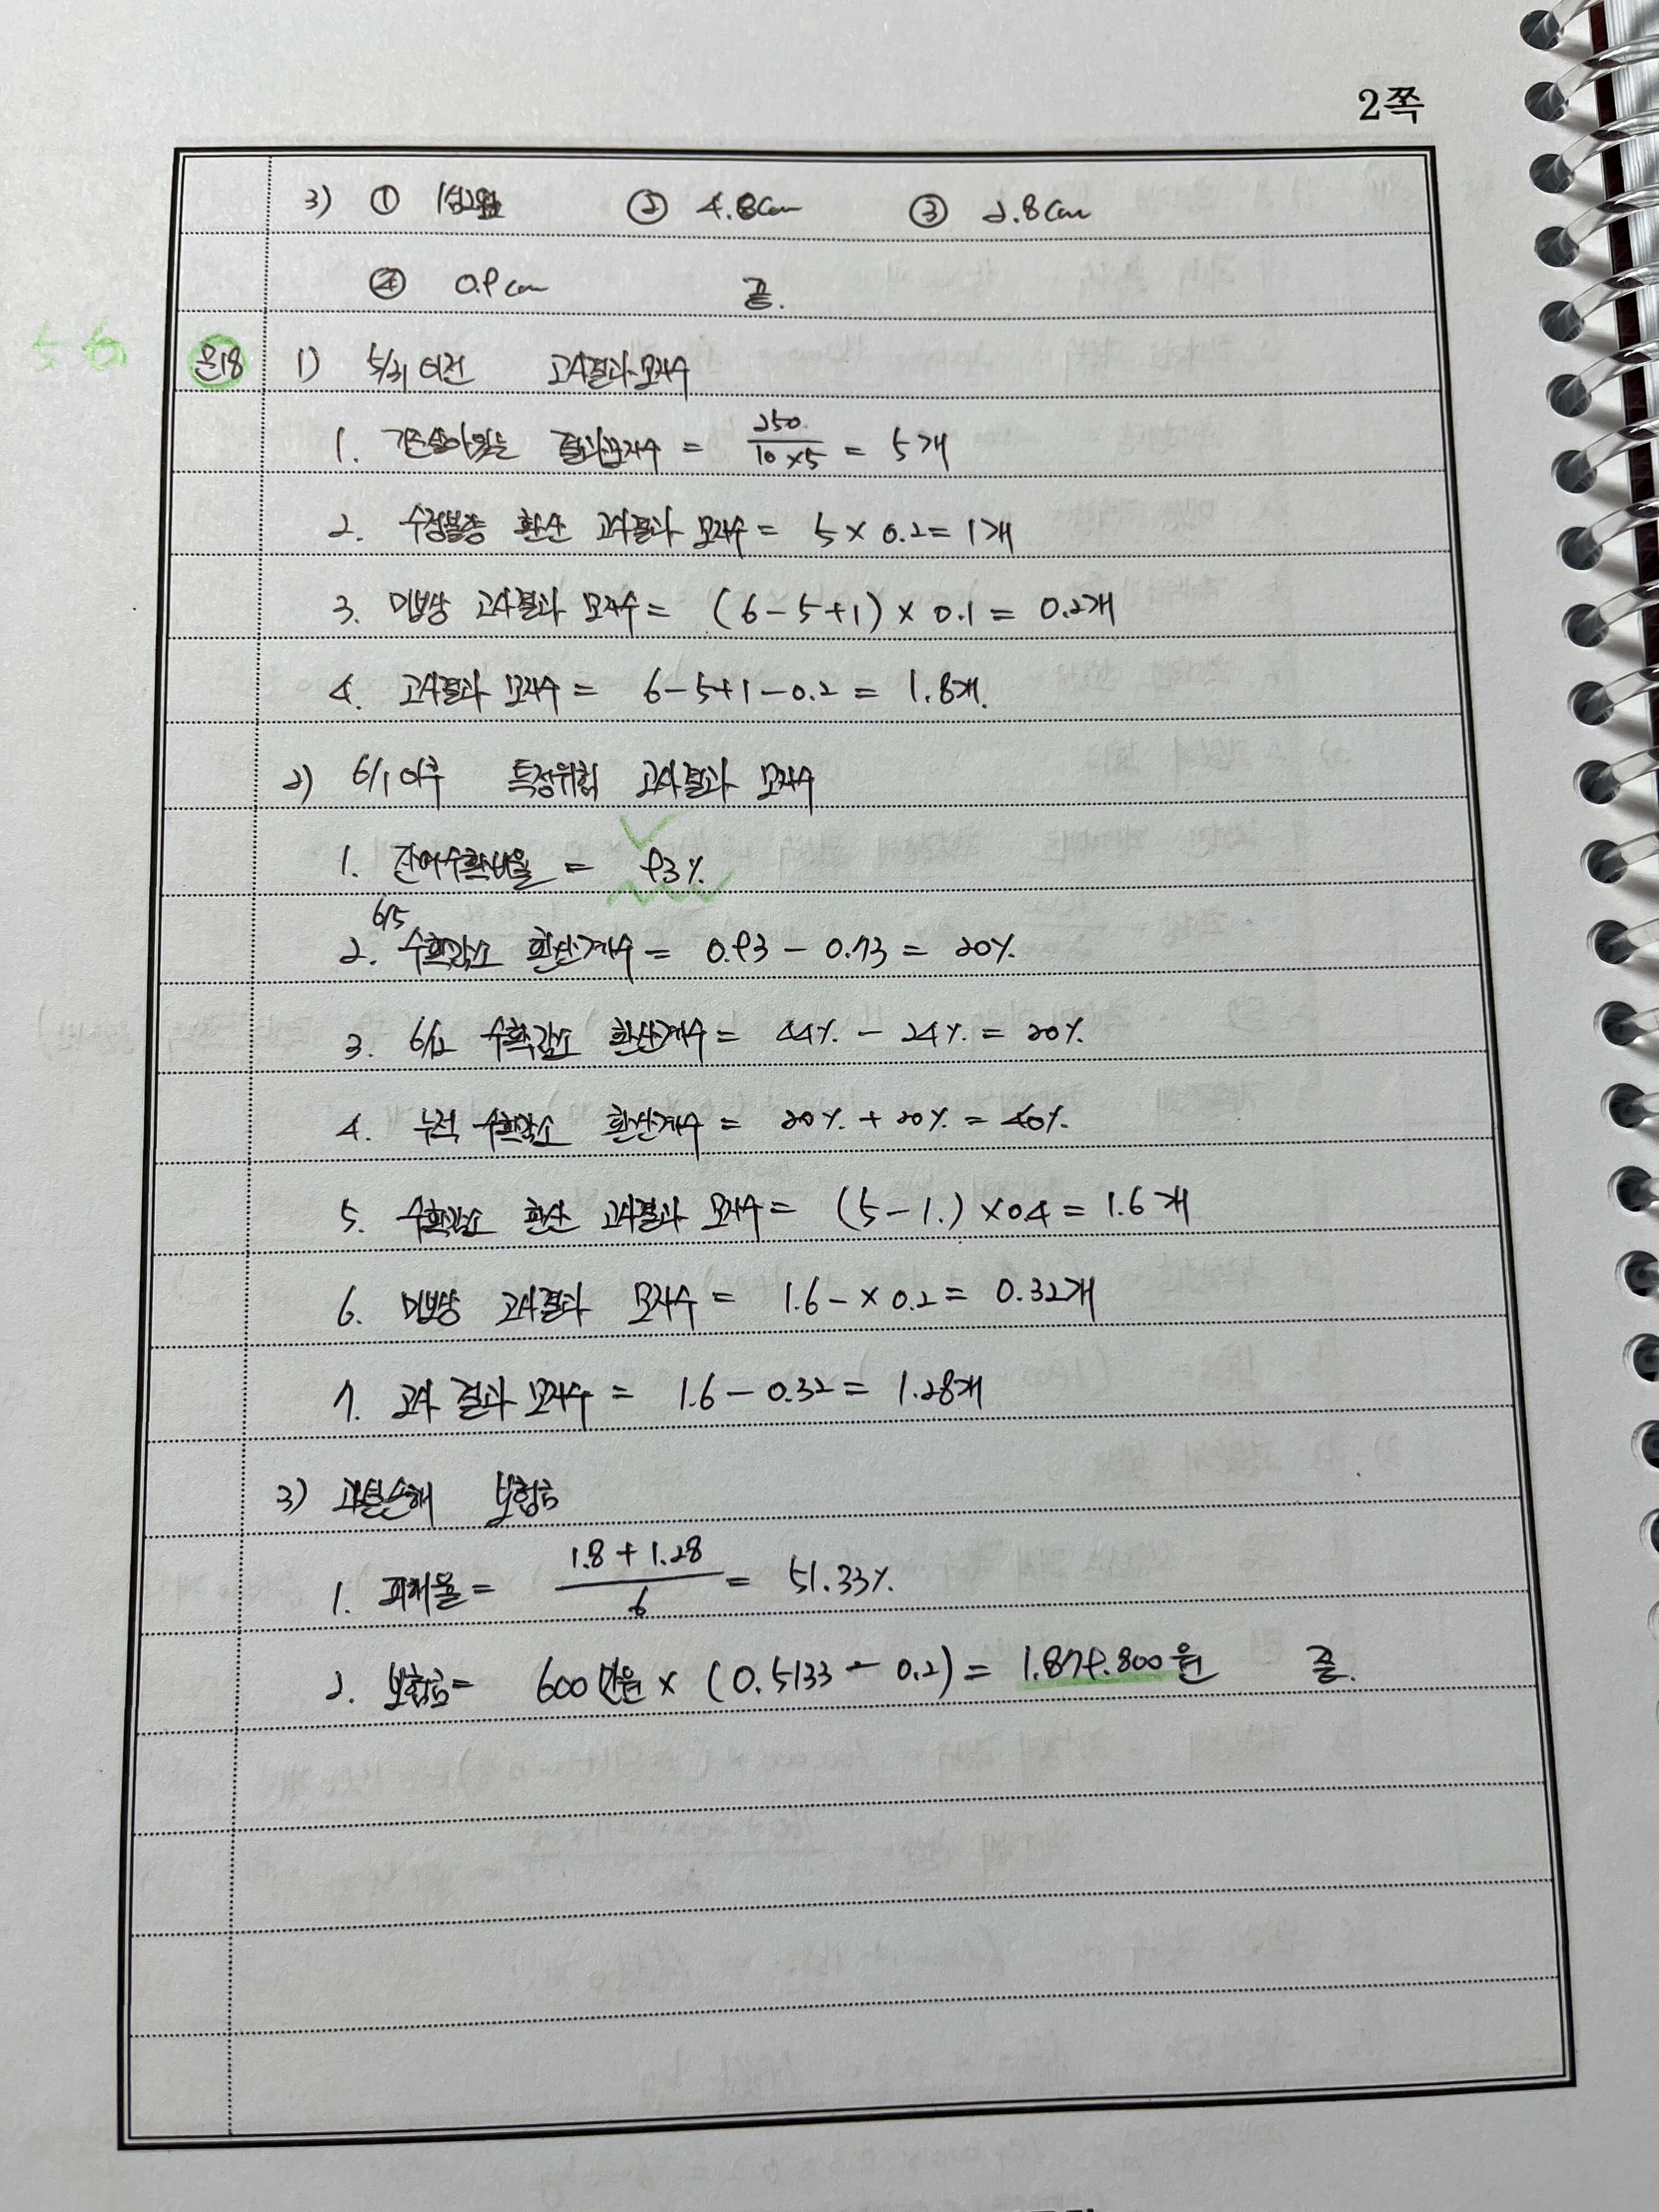 2쪽
3) ① 1㎝ ② 4.8cm ③ 2.8cm
④ 0.9cm 끝.
문18 1) 5/31 이전 고사결과모지수
1. 기준살아있는 결과모지수 = 250 / 10×5 = 5개
2. 수정불량 환산 고사결과 모지수 = 5 × 0.2 = 1개
3. 미보상 고사결과 모지수 = (6-5+1) × 0.1 = 0.2개
4. 고사결과 모지수 = 6-5+1-0.2 = 1.8개.
2) 6/1 이후 특정위험 고사결과 모지수
1. 잔여수확비율 = 93%.
6/5
2. 수확감소 환산계수 = 0.93 - 0.73 = 20%.
3. 6/12 수확감소 환산계수 = 44% - 24% = 20%.
4. 누적 수확감소 환산계수 = 20% + 20% = 40%.
5. 수확감소 환산 고사결과 모지수 = (5-1.) × 0.4 = 1.6개
6. 미보상 고사결과 모지수 = 1.6 - × 0.2 = 0.32개
7. 고사 결과 모지수 = 1.6 - 0.32 = 1.28개
3) 과실손해 보험금
1. 피해율 = 1.8 + 1.28 / 6 = 51.33%.
2. 보험금 = 600만원 × (0.5133 - 0.2) = 1.879.800원 끝.